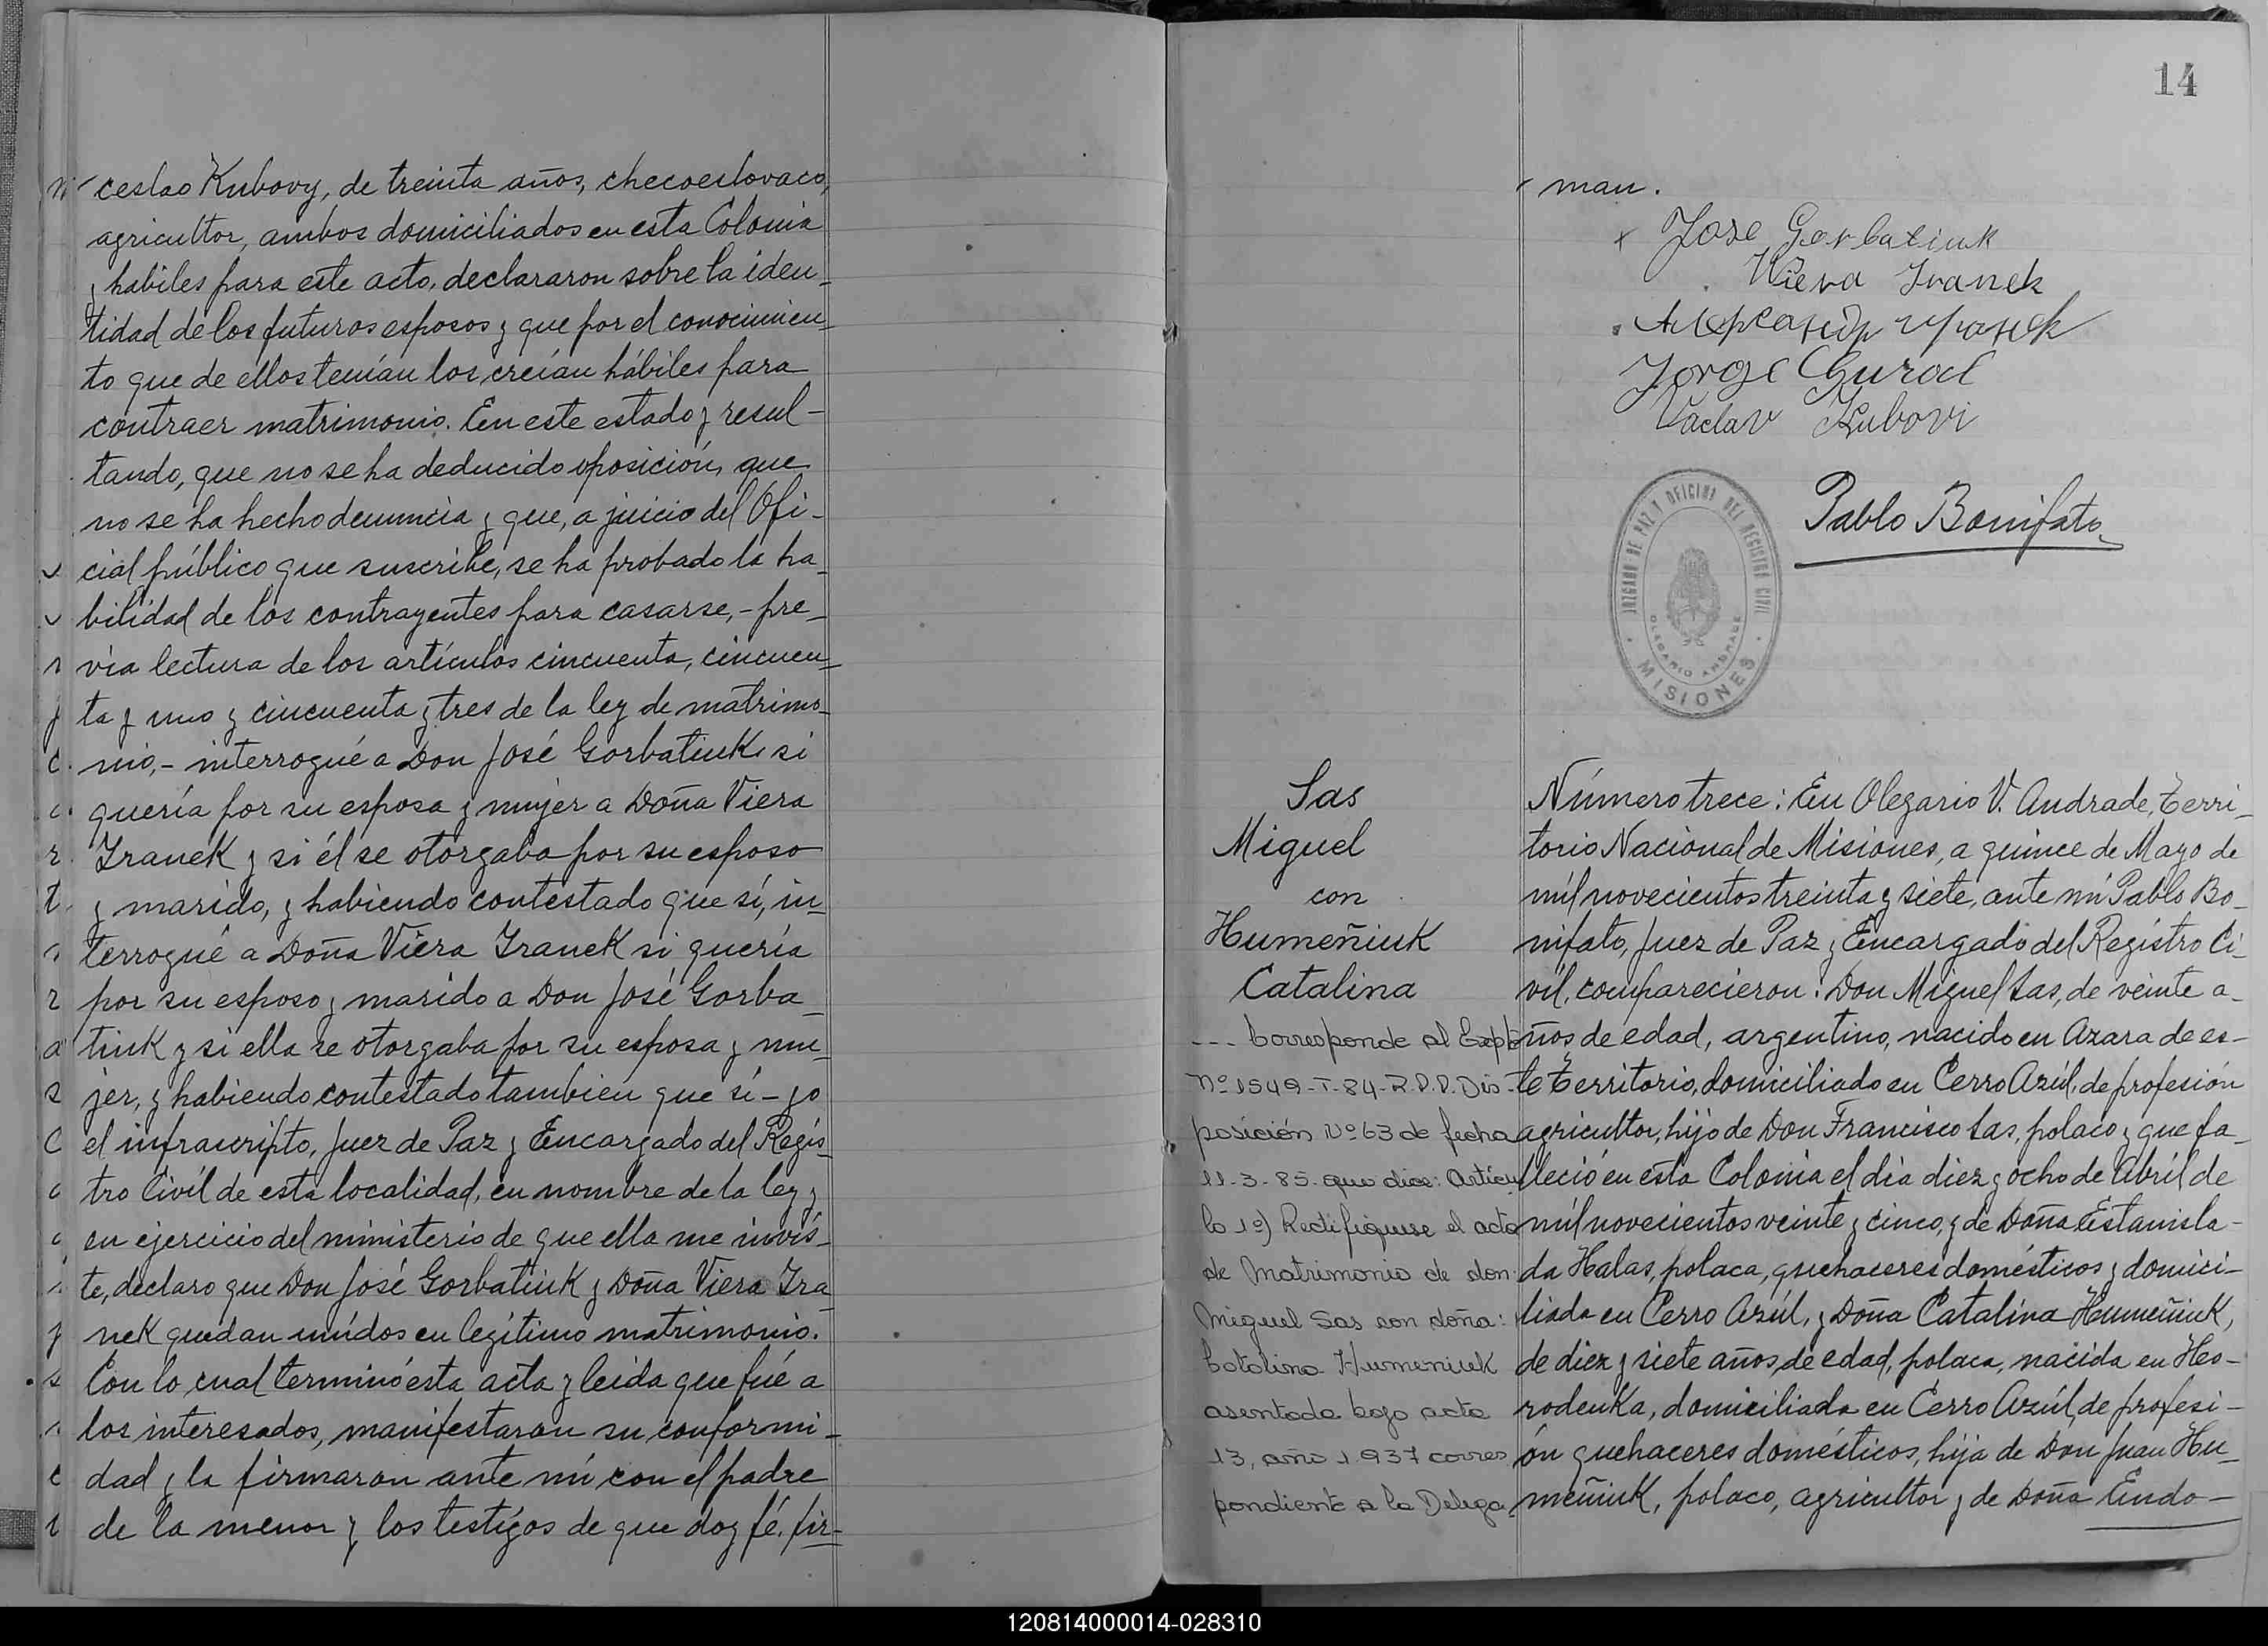 ceslao Kubovy, de treinta años, checoeslovaco,
agricultor, ambos domiciliados en esta Colonia
y habiles para este acto, declararon sobre la iden-
tidad de los futuros esposos y que por el conocimien-
to que de ellos tenían los creían hábiles para
contraer matrimonio. En este estado y resul-
tando, que no se ha deducido oposición, que
no se ha hecho denuncia y que, a juicio del Ofi-
cial público que suscribe, se ha probado la ha-
bilidad de los contrayentes para casarse, - pre-
via lectura de los artículos cincuenta, cincuen-
ta y uno y cincuenta y tres de la ley de matrimo-
nio, - interrogué a Don José Gorbatiuk si
quería por su esposa y mujer a Doña Viera
Iranek y si él se otorgaba por su esposo
y marido, y habiendo contestado que sí, in-
terrogué a Doña Viera Iranek si quería
por su esposo y marido a Don José Gorba-
tiuk y si ella se otorgaba por su esposa y mu-
jer, y habiendo contestado tambien que sí - yo
el infrascripto, Juez de Paz y Encargado del Regis-
tro Civíl de esta localidad, en nombre de la ley y
en ejercicio del ministerio de que ella me invis-
te, declaro que Don José Gorbatiuk y Doña Viera Ira-
nek quedan unídos en legítimo matrimonio.
Con lo cual terminó esta acta y leida que fué a
los interesados, manifestaron su conformi-
dad y la firmaron ante mí con el padre
de la menor y los testígos de que doy fé. fir-
14
man.
Jose Gorbatiuk
Wiera Iranek
Jorge Gurod
Václav Kubovi
Pablo Bonifato
JUZGADO DE PAZ Y OFICINA DEL REGISTRO CIVIL
OLEGARIO ANDRADE
MISIONES
Sas
Miguel
con
Humeñiuk
Catalina
--- Corresponde al Expte
Nº 1549-T-84-R.P.P. Dis-
posición Nº 63 de fecha
11-3-85- que dice: Artícu
lo 1º) Rectifíquese el acta
de Matrimonio de don:
Miguel Sas con doña:
Catalina Humeniuk
asentada bajo acta
13, año 1.937 corres
pondiente a la Delega
Número trece: En Olegario V. Andrade, Terri-
torio Nacional de Misiones, a quince de Mayo de
míl novecientos treinta y siete, ante mí Pablo Bo-
nifato, Juez de Paz y Encargado del Regístro Ci-
víl, comparecieron: Don Miguel Sas, de veinte a-
ños de edad, argentino, nacido en Azara de es-
te Territorio, domiciliado en Cerro Azúl, de profesión
agricultor, hijo de Don Francisco Sas, polaco, y que fa-
lleció en esta Colonia el día diez y ocho de Abríl de
míl novecientos veinte y cinco, y de Doña Estanisla-
da Halas, polaca, quehaceres domésticos y domici-
liada en Cerro Azúl, y Doña Catalina Humeñiuk,
de diez y siete años de edad, polaca, nacida en Ho-
rodenka, domiciliada en Cerro Azúl, de profesi-
ón quehaceres domésticos, hija de Don Juan Hu-
meñiuk, polaco, agricultor y de Doña Eudo-
120814000014-028310